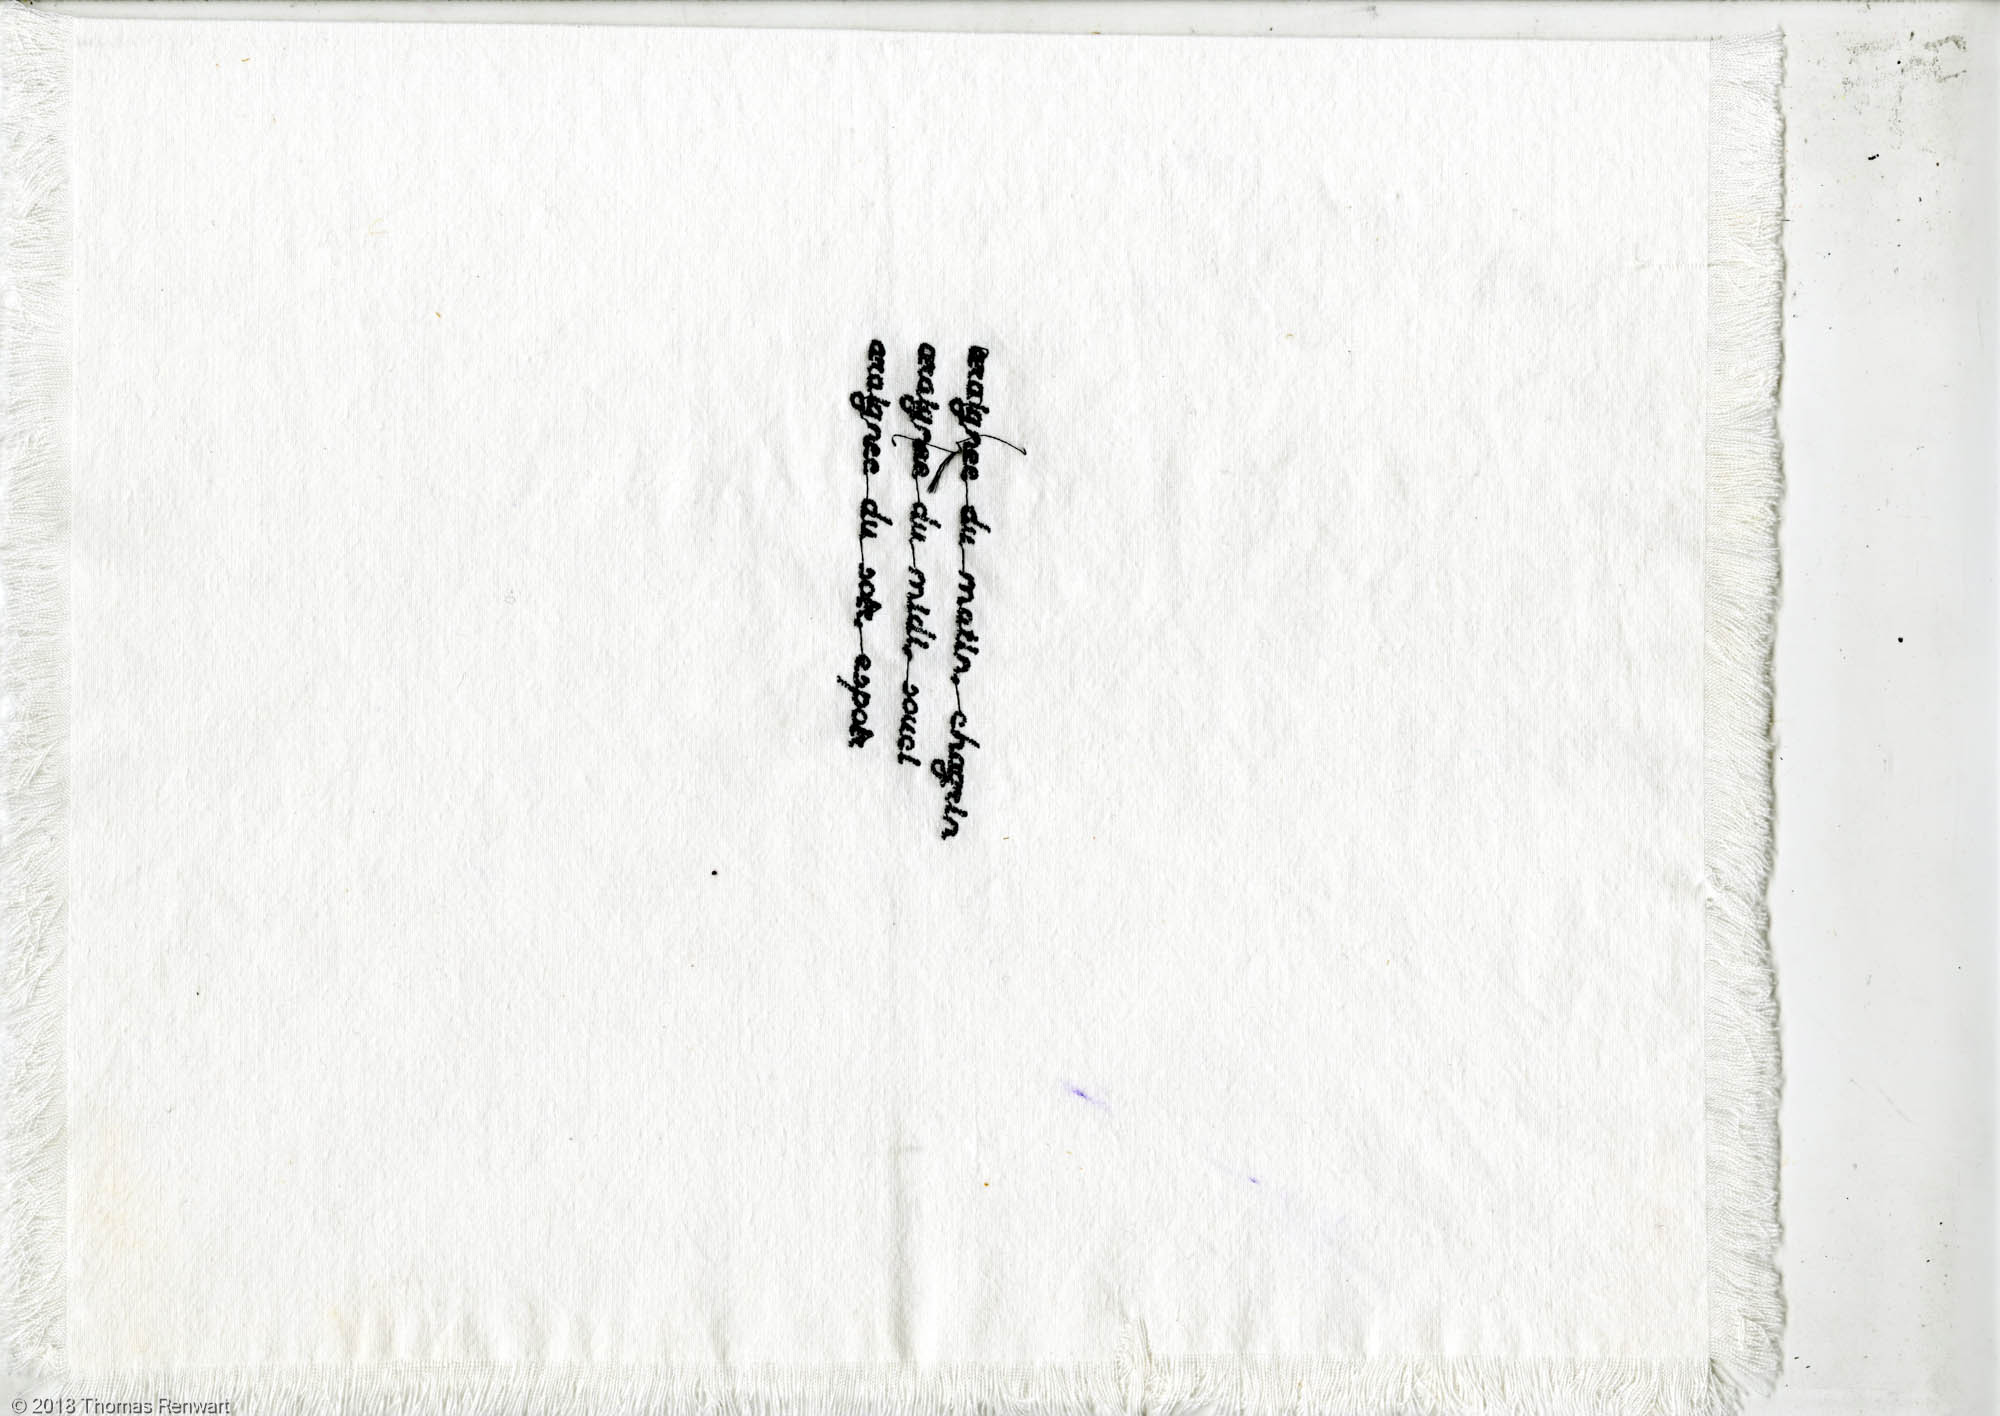 araignée du matin, chagrin
araignée du midi, souci
araignée du soir, espoir
© 2018 Thomas Renwart